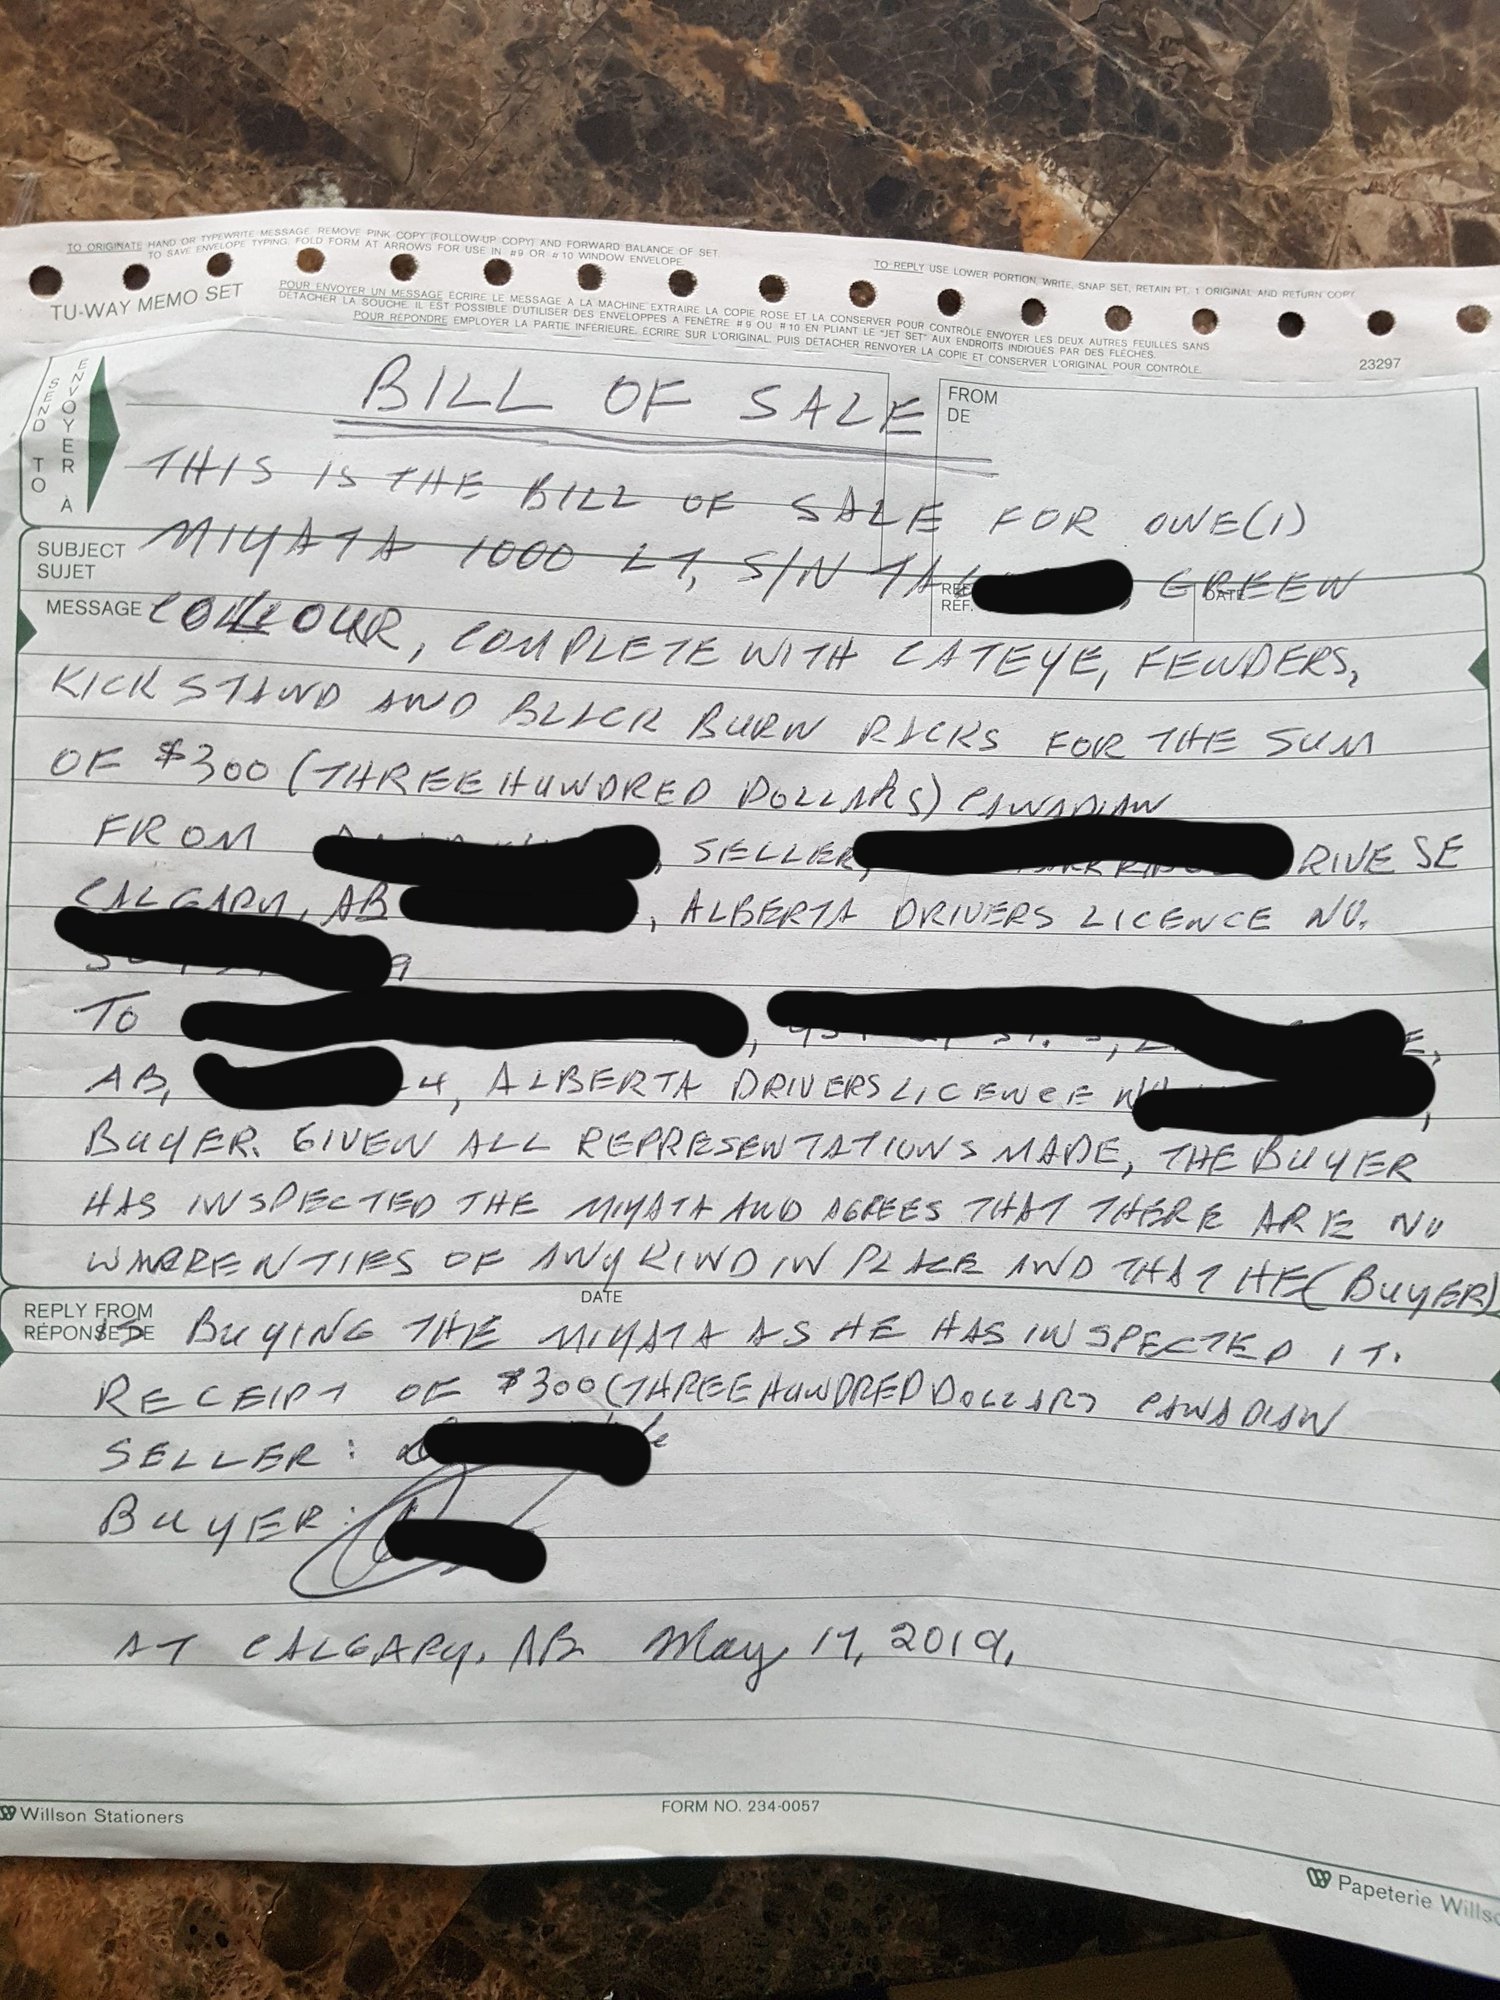 TO ORIGINATE HAND OR TYPEWRITE MESSAGE. REMOVE PINK COPY (FOLLOW-UP COPY) AND FORWARD BALANCE OF SET.
TO SAVE ENVELOPE TYPING, FOLD FORM AT ARROWS FOR USE IN #9 OR #10 WINDOW ENVELOPE.
TO REPLY USE LOWER PORTION, WRITE, SNAP SET, RETAIN PT. 1 ORIGINAL AND RETURN COPY
TU-WAY MEMO SET
POUR ENVOYER UN MESSAGE ECRIRE LE MESSAGE A LA MACHINE EXTRAIRE LA COPIE ROSE ET LA CONSERVER POUR CONTRÔLE ENVOYER LES DEUX AUTRES FEUILLES SANS
DETACHER LA SOUCHE. IL EST POSSIBLE D'UTILISER DES ENVELOPPES A FENÊTRE #9 OU #10 EN PLIANT LE "JET SET" AUX ENDROITS INDIQUÉS PAR DES FLÈCHES.
POUR RÉPONDRE EMPLOYER LA PARTIE INFERIEURE. ÉCRIRE SUR L'ORIGINAL. PUIS DETACHER RENVOYER LA COPIE ET CONSERVER L'ORIGINAL POUR CONTRÔLE.
23297
SEND TO
ENVOYER À
BILL OF SALE
FROM
DE
THIS IS THE BILL OF SALE FOR ONE(1)
SUBJECT
SUJET
MIYATA 1000 LT, S/N TA , GREEN
REF.
DATE
MESSAGE
COLOUR, COMPLETE WITH CATEYE, FENDERS,
KICKSTAND AND BLACK BURN RACKS FOR THE SUM
OF $300 (THREE HUNDRED DOLLARS) CANADIAN
FROM , SELLER, RIVE SE
CALGARY, AB , ALBERTA DRIVERS LICENCE NO.
9
TO ,
AB, 4, ALBERTA DRIVERS LICENCE ,
BUYER. GIVEN ALL REPRESENTATIONS MADE, THE BUYER
HAS INSPECTED THE MIYATA AND AGREES THAT THERE ARE NO
WARRENTIES OF ANY KIND IN PLACE AND THAT HE (BUYER)
REPLY FROM
RÉPONSE DE
DATE
IS BUYING THE MIYATA AS HE HAS INSPECTED IT.
RECEIPT OF $300 (THREE HUNDRED DOLLARS) CANADIAN
SELLER:
BUYER:
AT CALGARY, AB May 17, 2019.
Willson Stationers
FORM NO. 234-0057
Papeterie Willso